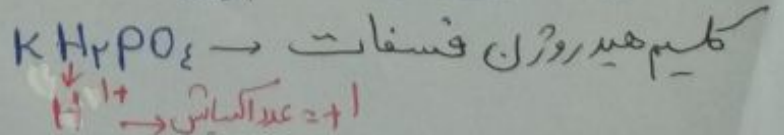 KH₂PO₄ → کلسیم هیدروژن فسفات
H¹⁺ → عدد اکسایش = +1